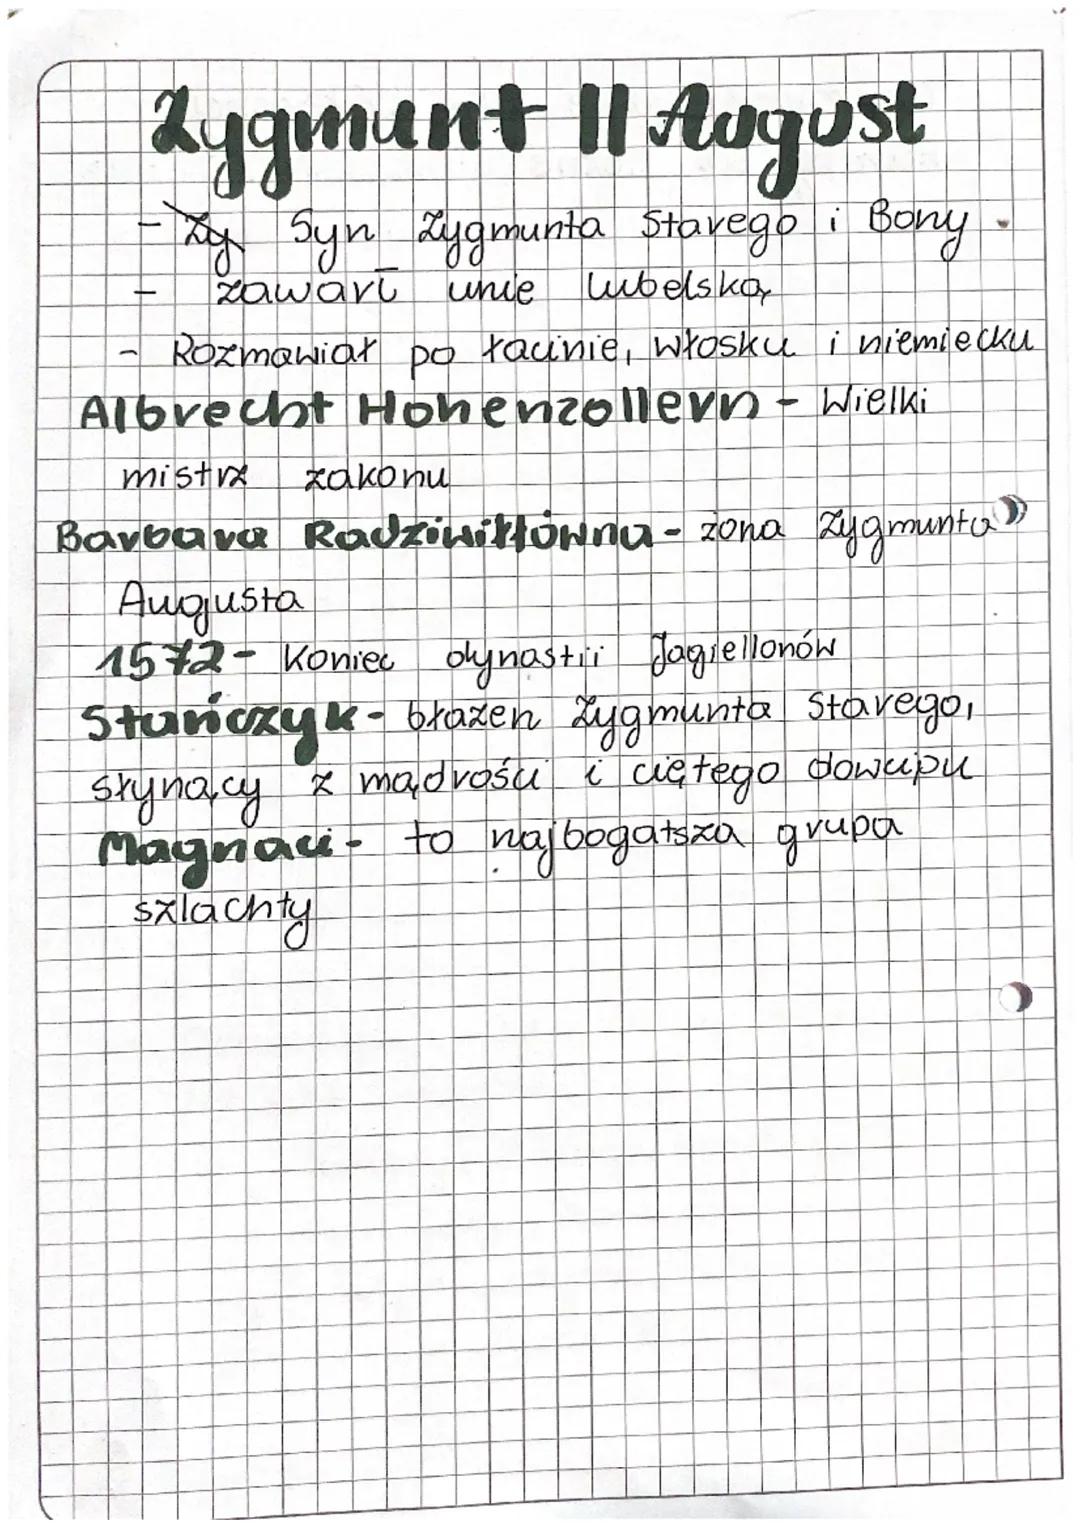 Zygmunt II August
- Zy Syn Zygmunta Starego i Bony.
- zawarł unie lubelską
- Rozmawiał po łacinie, włosku i niemiecku
Albrecht Hohenzollern - Wielki
mistrz zakonu
Barbara Radziwiłłówna - żona Zygmunta
Augusta
1572 - Koniec dynastii Jagiellonów
Stańczyk - błazen Zygmunta Starego,
słynący z mądrości i ciętego dowcipu
Magnaci - to najbogatsza grupa
szlachty